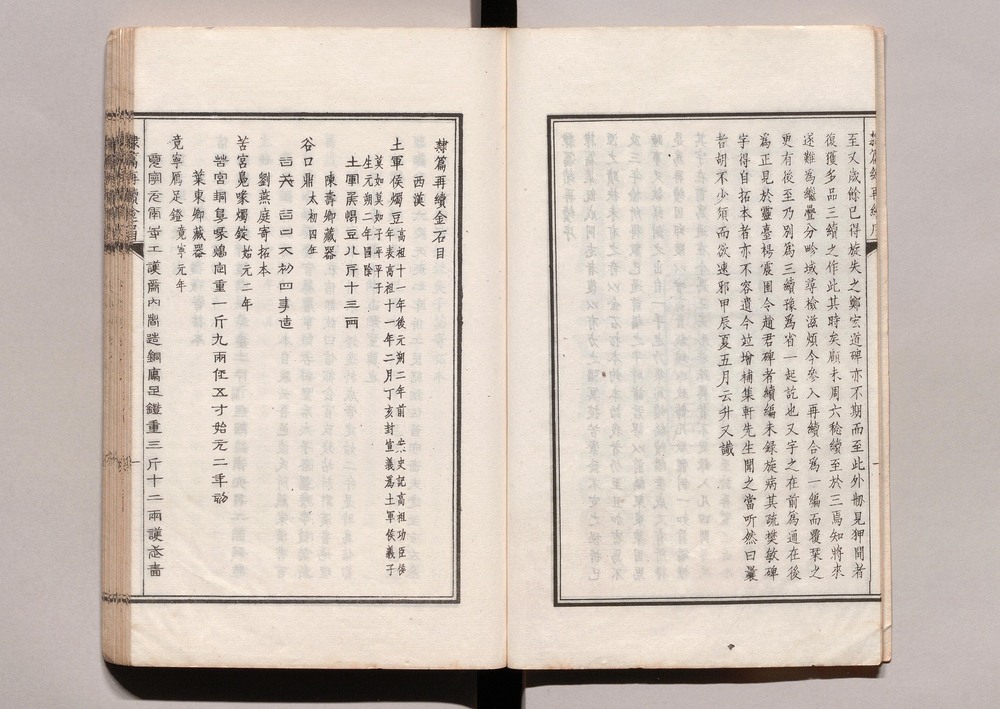 至又歲餘已得旋失之鄭宏道碑亦不期而至此外刱見狎聞者
復獲多品三續之作此其時矣顧未周六稔續至於三焉知將來
遂難為繼疊分畛域尋檢滋煩今參入再續合為一編而覆栞之
更有後至乃別為三續豫為省一起訖也又字之在前為通在後
為正見於靈臺楊震圉令趙君碑者續編未録旋病其疏樊敏碑
字得自拓本者亦不容遺今竝增補集軒先生聞之當听然曰曩
者胡不少須而欲速邪甲辰夏五月云升又識
隸篇再續金石目
西漢
土軍侯燭豆 高祖十一年後元朔二年前 史記高祖功臣侯
年表高祖十一年二月丁亥封宣義為土軍侯義子
莫如莫如子平平子
生元朔二年國除
土軍侯燭豆八斤十三兩
陳壽卿藏器
谷口鼎 太初四年
谷口 太初四年造
劉燕庭寄拓本
苦宮鳧喙燭錠 始元二年
苦宮銅鳧喙燭定重一斤九兩徑五寸始元二年
葉東卿藏器
竟寧鴈足鐙 竟寧元年
竟寧元年 工護為內者造銅鴈足鐙重三斤十二兩護